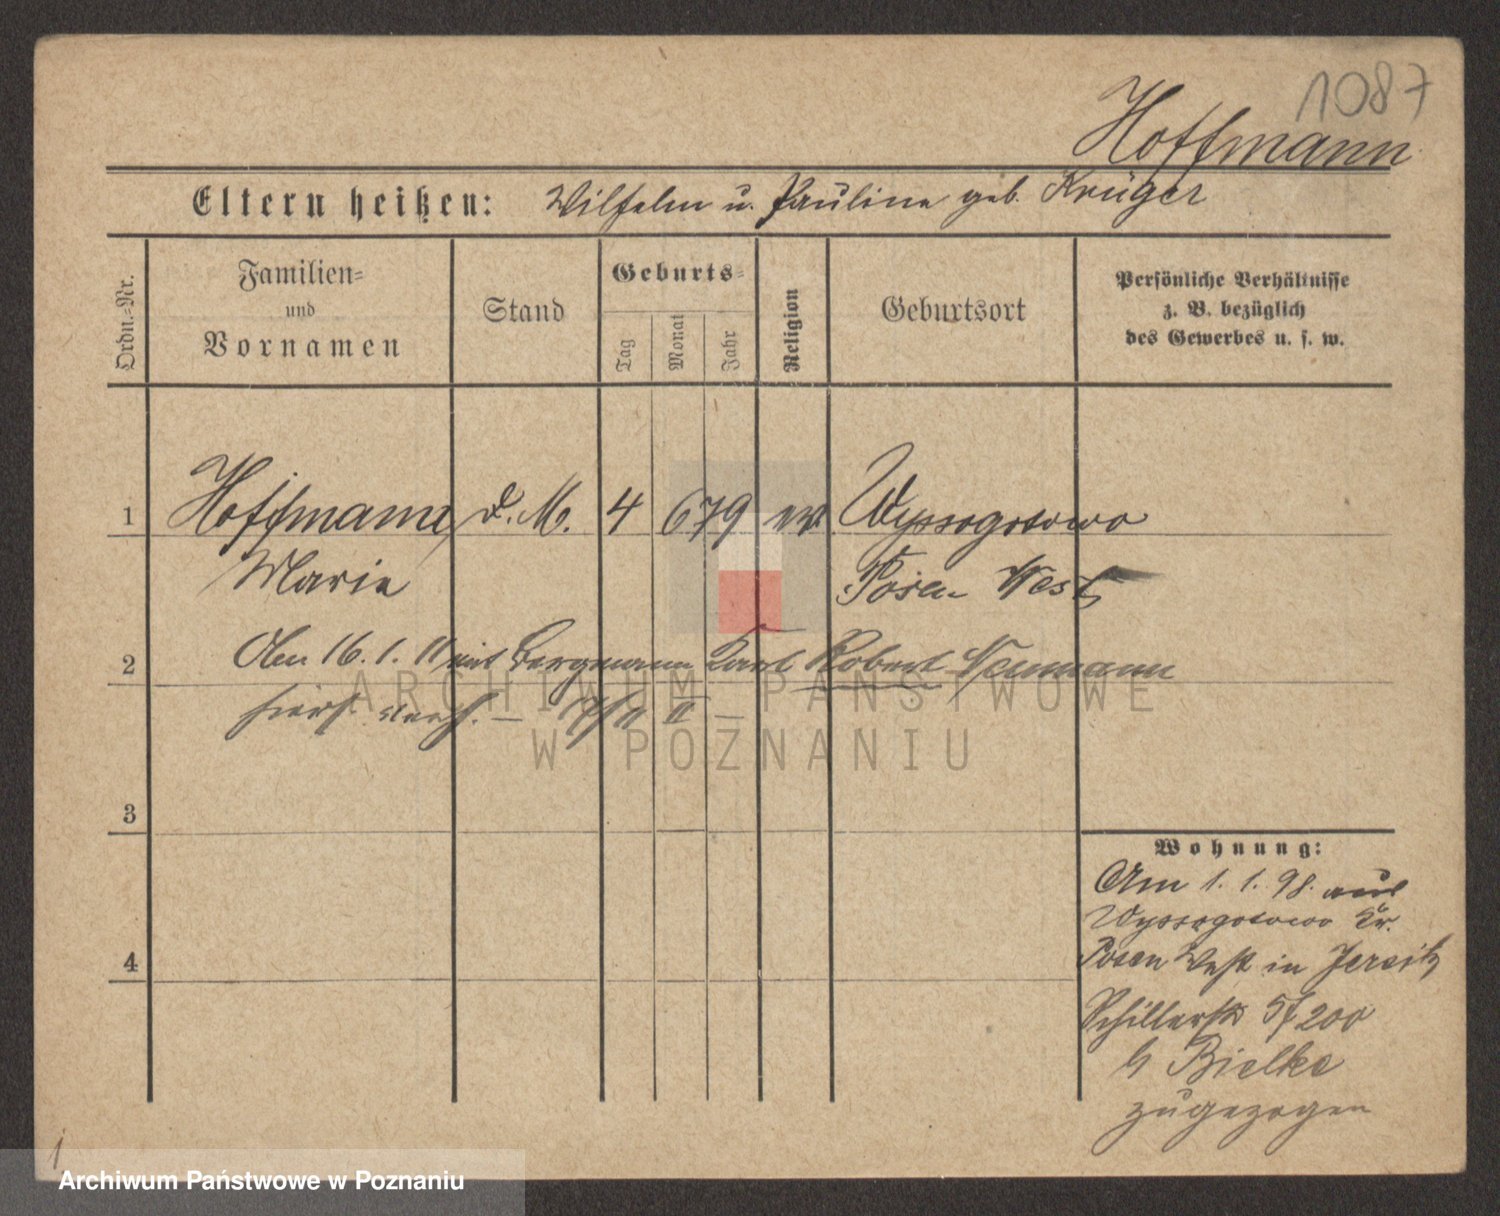 1087
Hoffmann
Eltern heißen: Wilhelm u. Pauline geb. Krüger
Ordn.-Nr.
Familien- und Vornamen
Stand
Geburts-
Tag
Monat
Jahr
Religion
Geburtsort
Persönliche Verhältnisse
z. B. bezüglich
des Gewerbes u. s. w.
1 Hoffmann d. M. 4 6 79 ev Wyssogotowo
Marie Posen West
2 Am 16. 1. 11 mit Bergmann Karl Robert Neumann
hiers. verh. –
3
4
Wohnung:
Am 1. 1. 98. aus
Wyssogotowo Kr.
Posen West in Jersitz
Schillerstr 5/200
b Bielke
zugezogen
ARCHIWUM PAŃSTWOWE
W POZNANIU
Archiwum Państwowe w Poznaniu